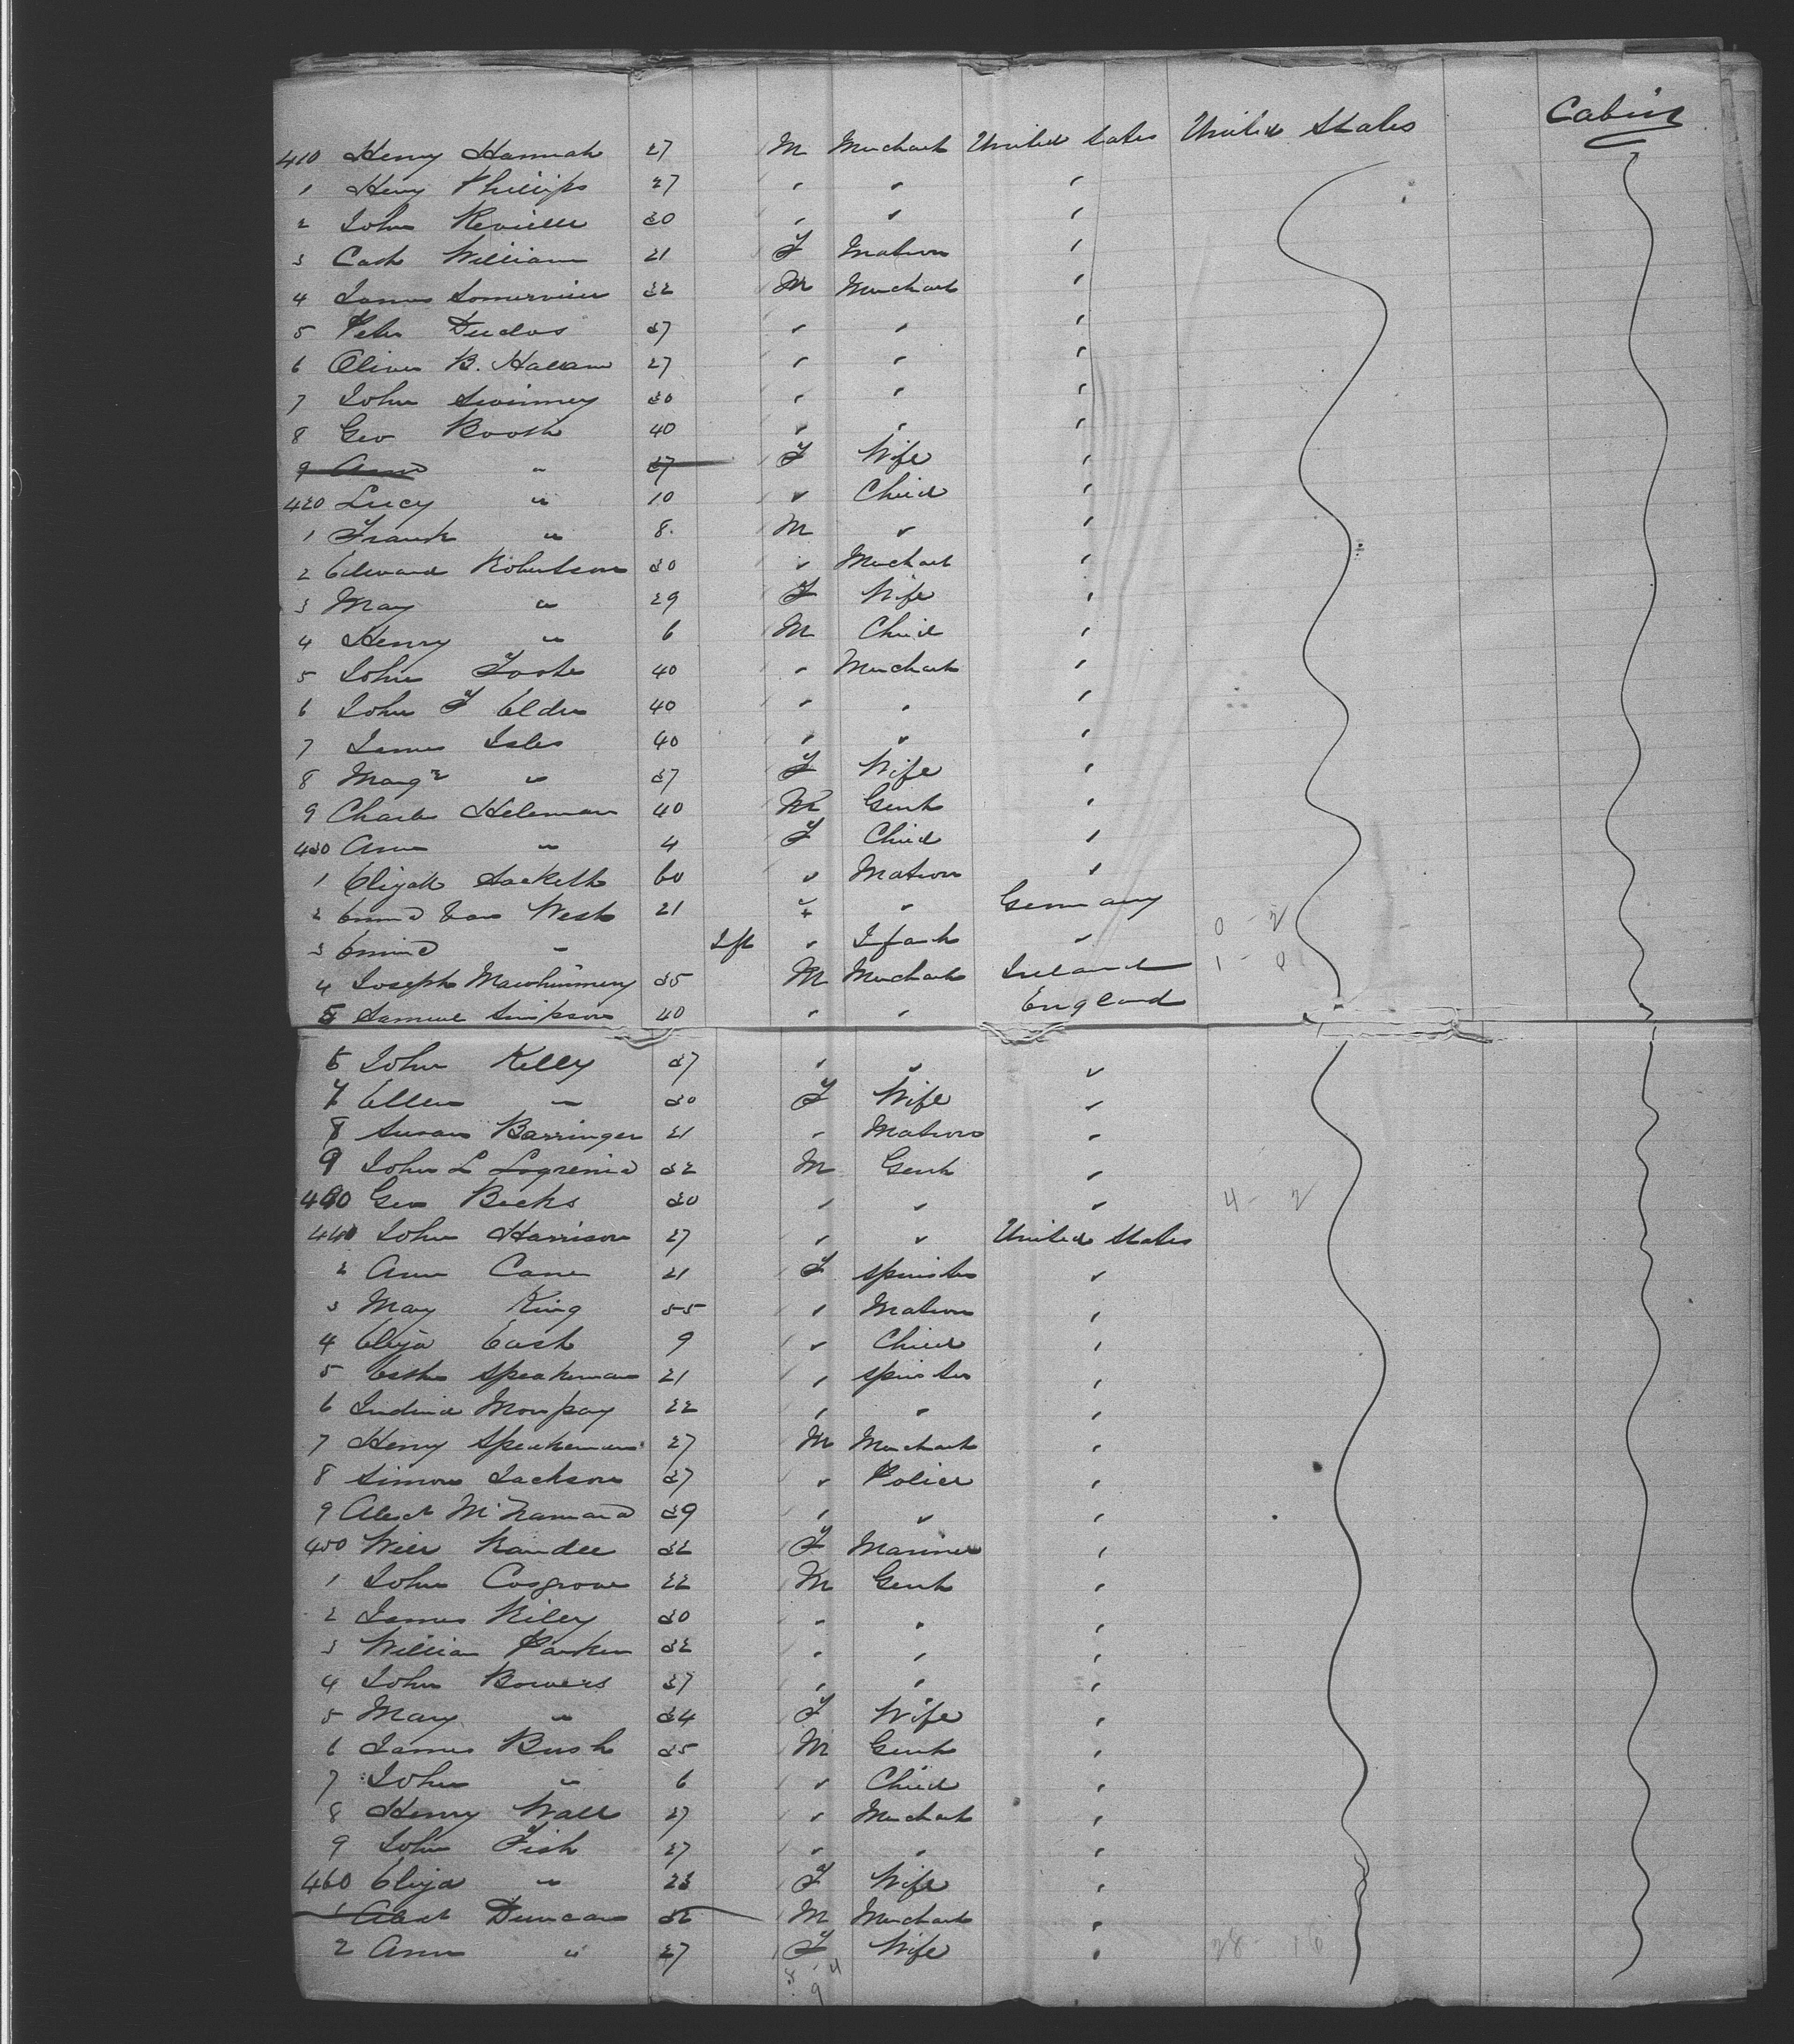 Cabin
410 Henry Hannah 27 M Merchant United States United States
1 Henry Phillips 27 " " "
2 John Reville 30 " " "
3 Cath William 21 F Matron "
4 James Somerville 32 M Merchant "
5 Peter 37 " " "
6 Oliver B. Hallam 27 " " "
7 John Swinney 30 " " "
8 Geo Booth 40 " " "
9 Ann " 37 F Wife "
420 Lucy " 10 " Child "
1 Frank " 8 M " "
2 Edward Robertson 30 " Merchant "
3 Mary " 29 F Wife "
4 Henry " 6 M Child "
5 John Foote 40 " Merchant "
6 John F Elder 40 " " "
7 James Isles 40 " " "
8 Margt " 37 F Wife "
9 Charles Heleman 40 M Gent "
430 Ann " 4 F Child "
1 Elizath Hackett 60 " Matron "
2 Emma Van West 21 " " Germany 0 - 2
3 Emma " Inft " Infant "
4 Joseph Mawhinney 35 M Merchant Ireland 1 - 0
5 Samuel Simpson 40 " " England
6 John Kelly 37 " " "
7 Ellen " 30 F Wife "
8 Susan Barringer 21 " Matron "
9 John L 32 M Gent "
440 Geo Beeks 30 " " " 4 - 2
441 John Harrison 27 " " United States
2 Ann Cane 21 F Spinster "
3 Mary King 55 " Matron "
4 Eliza Cash 9 " Child "
5 Esther Speakeman 21 " Spinster "
6 22 " " "
7 Henry Speakeman 27 M Merchant "
8 Simon Jackson 37 " Police "
9 Alexr McNamara 39 " " "
450 Will Randell 32 F Mariner "
1 John Cosgrove 22 M Gent "
2 James Riley 30 " " "
3 William Parker 32 " " "
4 John Bowers 37 " " "
5 Mary " 34 F Wife "
6 James Bush 35 M Gent "
7 John " 6 " Child "
8 Henry Wall 27 " Merchant "
9 John Fish 27 " " "
460 Eliza " 23 F Wife "
1 Alexr Duncan 32 M Merchant "
2 Ann " 27 F Wife " 28 - 16